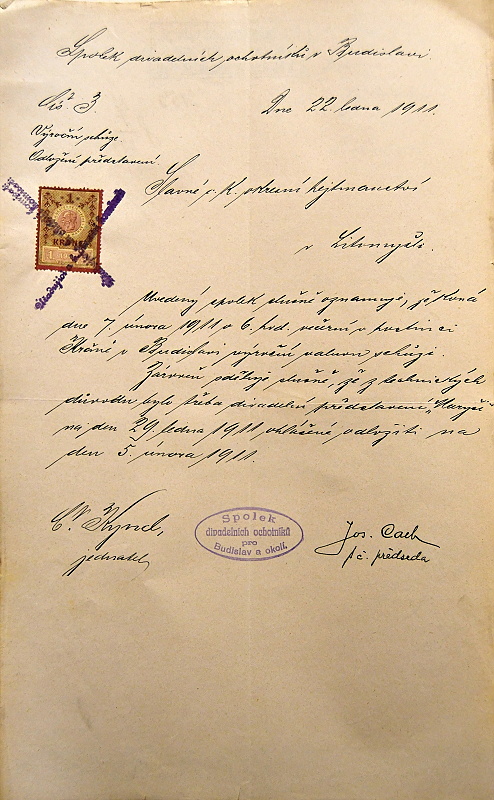 Spolek divadelních ochotníků v Budislavi.
Čís. 3.
Dne 22. ledna 1911.
Výroční schůze.
Odložení představení.
Slavné c. k. okresní hejtmanství
v Litomyšli.
1
KRONE
Uvedený spolek slušně oznamuje, že koná
dne 7. února 1911 o 6. hod. večerní v hostinci
v Budislavi výroční valnou schůzi.
Zároveň sděluje slušně, že z technických
důvodů bylo třeba divadelní představení „Maryša"
na den 29. ledna 1911 ohlášené odložiti na
den 5. února 1911.
Spolek
divadelních ochotníků
pro
Budislav a okolí.
jednatel
Jos.
t. č. předseda